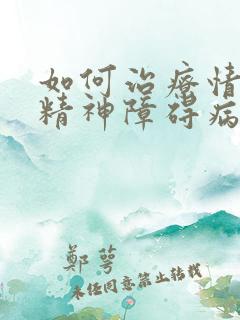 如何治疗情
精神障碍病
鄭萼
未经同意禁止转载